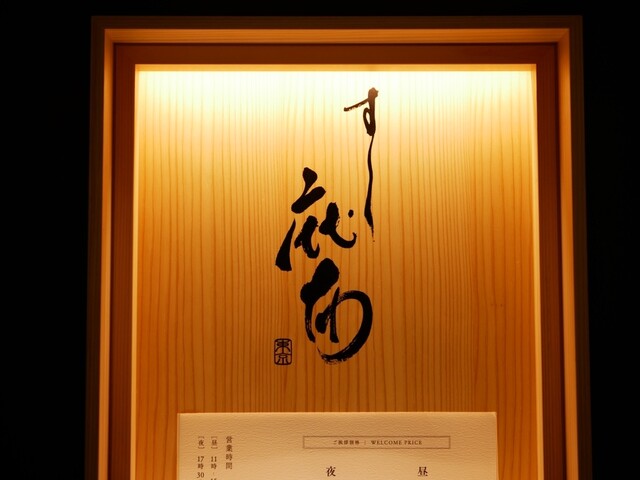 すし
麻布
東京
ご新規価格 | WELCOME PRICE
昼
夜
営業時間
［昼］11時
［夜］17時30